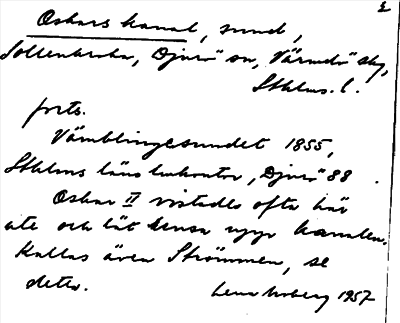 2
Oskars kanal, sund,
Sollenkroka, Djurö sn, Värmdö skg,
Sthlms. l.
forts.
Vämblingesundet 1855,
Sthlms läns lukontor, Djurö 88
Oskar II vistades ofta här
ute och lät rensa upp kanalen.
Kallas även Strömmen, se
detta.
Lena Moberg 1957